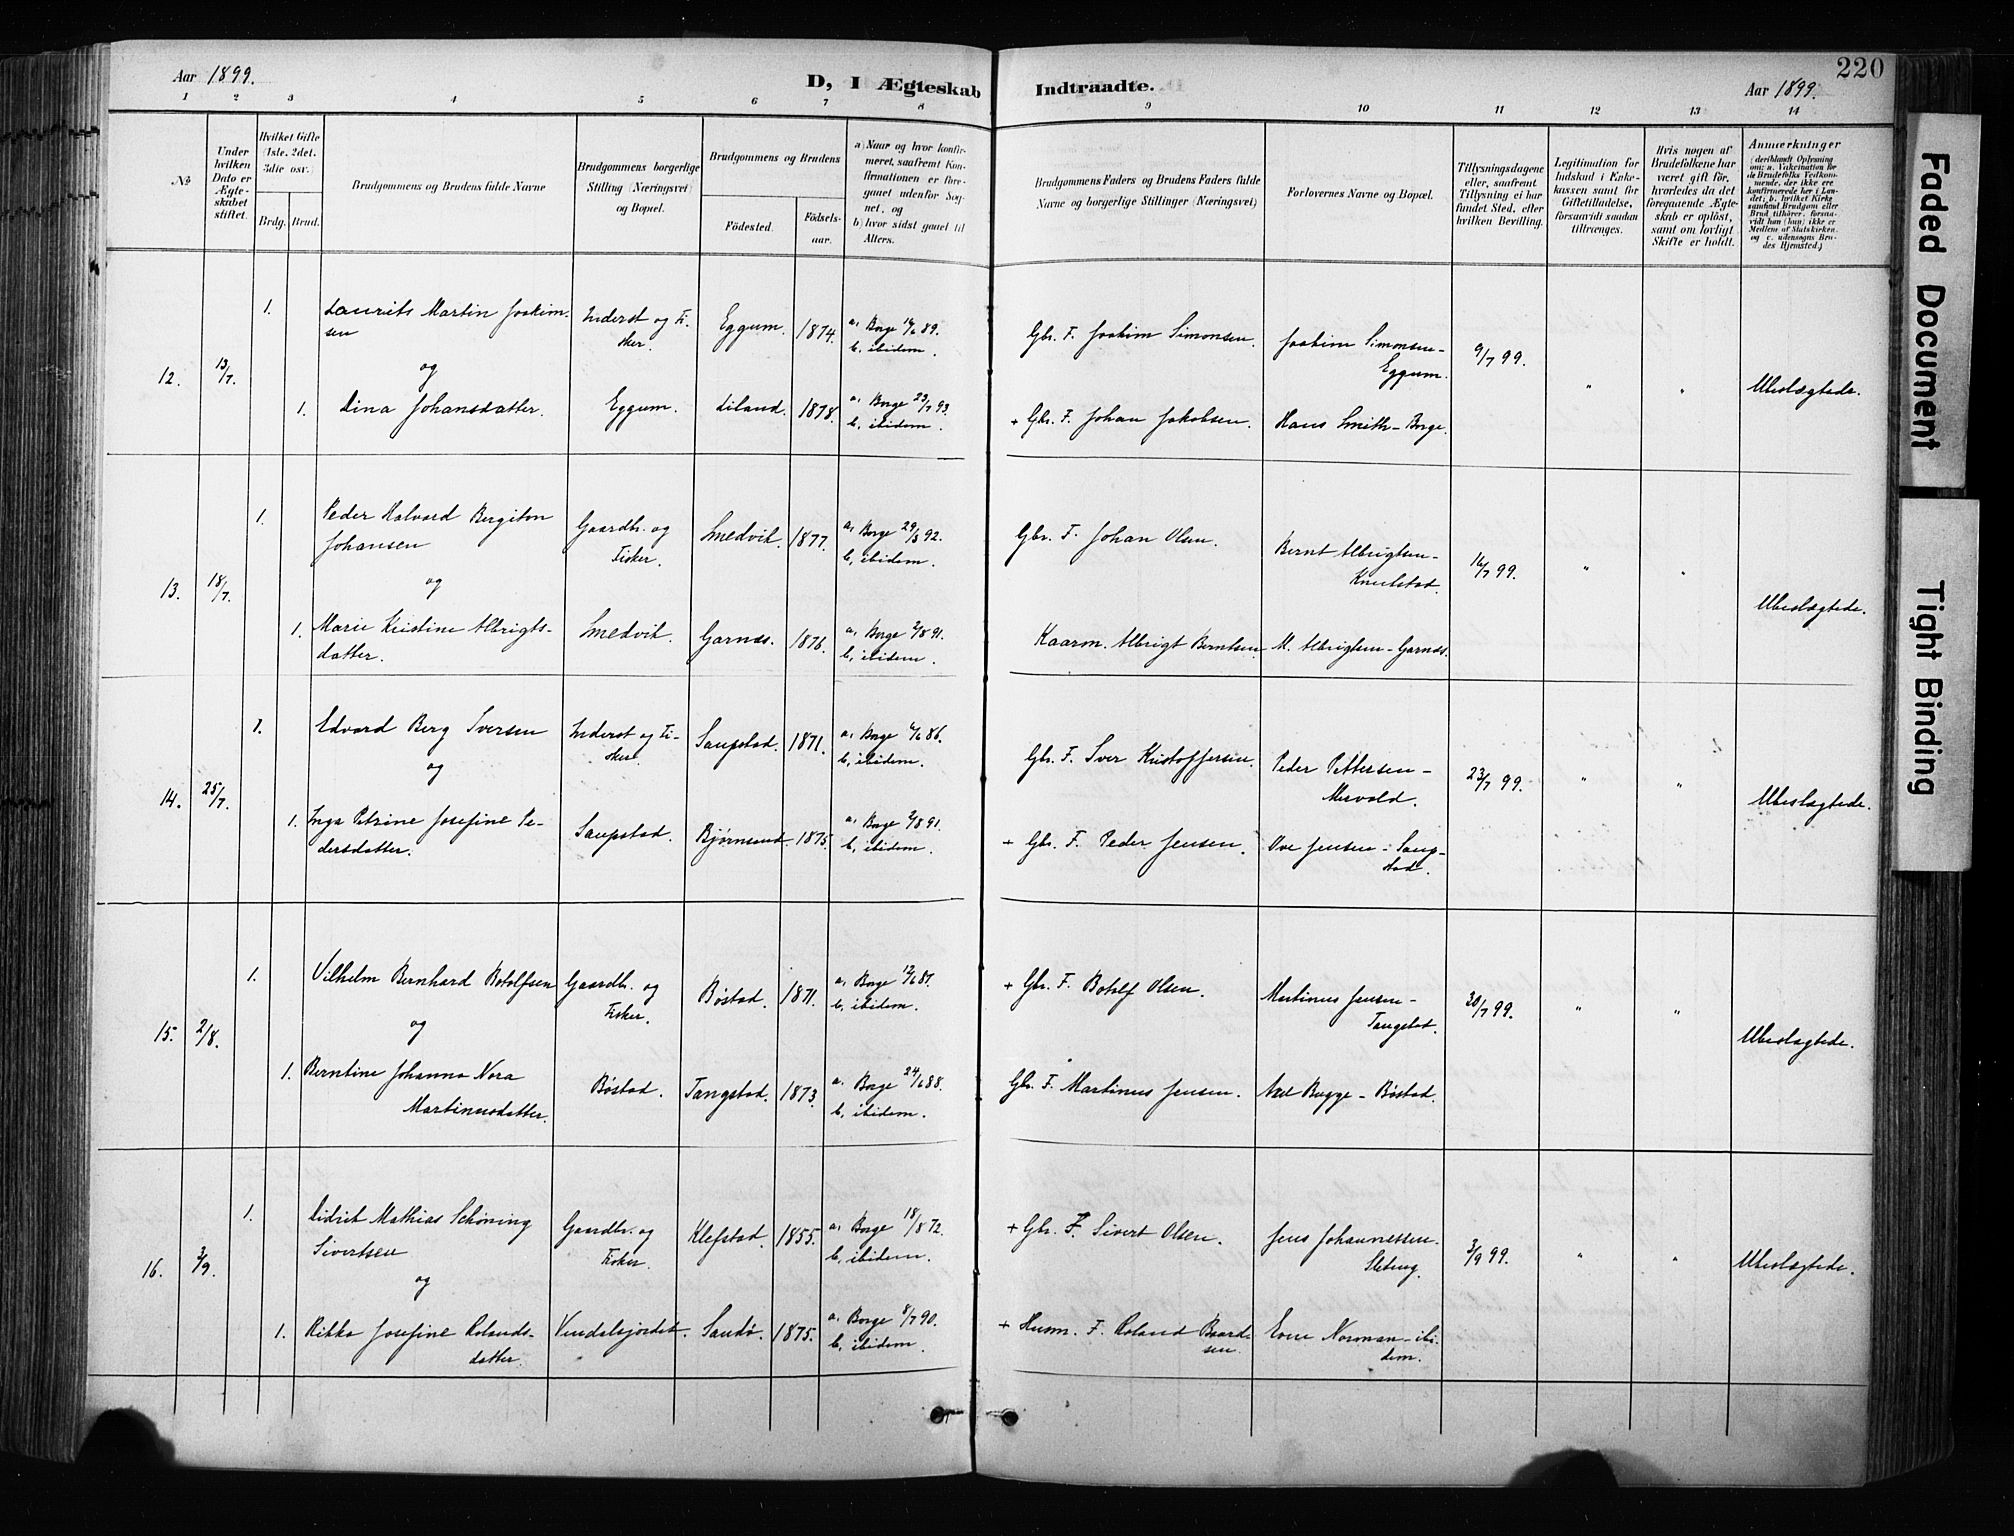 Aar 1899.
D, I Ægteskab Indtraadte.
Aar 1899.
220
1 2 3 4 5 6 7 8 9 10 11 12 13 14
No
Under hvilken Dato er Ægteskabet stiftet.
Hvilket Gifte (1ste, 2det, 3die osv.)
Brdg. Brud.
Brudgommens og Brudens fulde Navne
Brudgommens borgerlige Stilling (Næringsvei) og Bopæl.
Brudgommens og Brudens
Födested.
Födselsaar.
a) Naar og hvor konfirmeret, saafremt Konfirmationen er foregaaet udenfor Sognet, og
b) hvor sidst gaaet til Alters.
Brudgommens Faders og Brudens Faders fulde Navne og borgerlige Stillinger (Næringsvei)
Forlovernes Navne og Bopæl.
Tillysningsdagene eller, saafremt Tillysning ei har fundet Sted, efter hvilken Bevilling.
Legitimation for Indskud i Enkekassen samt for Giftetilladelse, forsaavidt saadan tiltrænges.
Hvis nogen af Brudefolkene har været gift för, hvorledes da det foregaaende Ægteskab er oplöst, samt om lovligt Skifte er holdt.
Anmærkninger
(deriblandt Oplysning om: a. Vakcination for de Brudefolks Vedkommende, der ikke ere konfirmerede her i Landet; b. hvilket Kirkesamfund Brudgom eller Brud tilhörer, forsaavidt han (hun) ikke er Medlem af Statskirken. og c. udensogns Brudes Hjemsted.)
12. 13/7. 1. Laurits Martin Joakimsen
Inderst og Fisker.
Eggum. 1874.
a, Borge 16/6 89.
b, ibidem.
Gbr. F. Joakim Simonsen.
Joakim Simonsen - Eggum.
9/7 99. " " Ubeslægtede.
og
1. Lina Johansdatter.
Eggum. Liland. 1878.
a, Borge 23/7 93.
b, ibidem.
+ Gbr. F. Johan Jakobsen.
Hans Smith - Borge.
13. 18/7. 1. Peder Halvard Bergiton Johansen
Gaardbr. og Fisker.
Smedvik. 1877.
a, Borge 29/5 92.
b, ibidem.
Gbr. F. Johan Olsen.
Bernt Albrigtsen - Knutstad.
16/7 99. " " Ubeslægtede.
og
1. Marie Kristine Albrigtsdatter.
Smedvik. Garnæs. 1876.
a, Borge 2/8 91.
b, ibidem.
Kaarm. Albrigt Berntsen.
M. Albrigtsen - Garnæs.
14. 25/7. 1. Edvard Berg Iversen
Inderst og Fisker.
Saupstad. 1871.
a, Borge 6/6 86.
b, ibidem.
Gbr. F. Iver Kristoffersen.
Peder Pettersen - Mervold.
23/7 99. " " Ubeslægtede.
og
1. Inga Petrine Josefine Pedersdatter.
Saupstad. Bjørnsand. 1875.
a, Borge 2/8 91.
b, ibidem.
+ Gbr. F. Peder Jensen.
Ove Jensen - Saupstad.
15. 2/8. 1. Vilhelm Bernhard Botolfsen
Gaardbr. og Fisker.
Bøstad. 1871.
a, Borge 12/6 87.
b, ibidem.
+ Gbr. F. Botolf Olsen.
Martinus Jensen - Tangstad.
30/7 99. " " Ubeslægtede.
og
1. Berntine Johanna Nora Martinusdatter.
Bøstad. Tangstad. 1873.
a, Borge 24/6 88.
b, ibidem.
Gbr. F. Martinus Jensen.
Axel Bugge - Bøstad.
16. 3/9. 1. Didrik Mathias Schöning Sivertsen
Gaardbr. og Fisker.
Klefstad. 1855.
a, Borge 18/8 72.
b, ibidem.
+ Gbr. F. Sivert Olsen.
Jens Johannessen.
3/9 99. " " Ubeslægtede.
og
1. Rikka Josefine Rolandsdatter.
Vendalsjordet. Sandö. 1875.
a, Borge 8/7 90.
b, ibidem.
+ Husm. F. Roland Baardsen.
Norman - ibidem.
Faded Document
Tight Binding